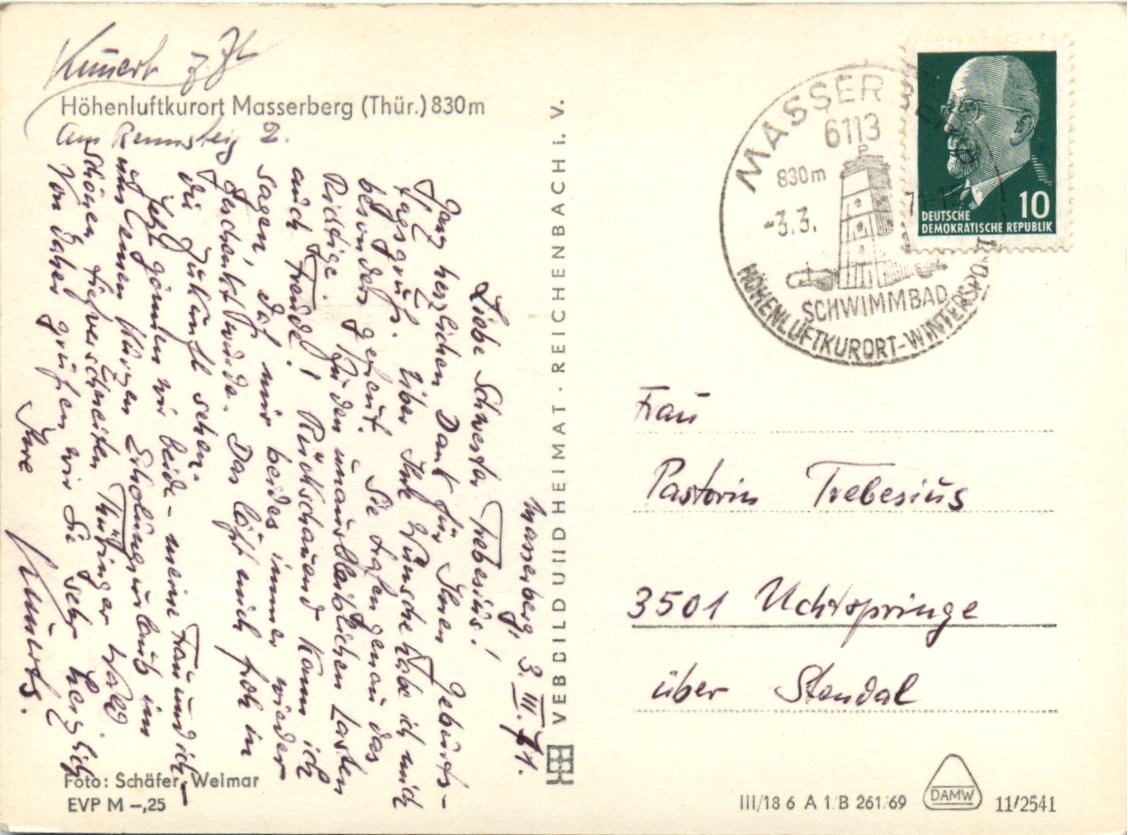 Kunert z.Zt.
Höhenluftkurort Masserberg (Thür.) 830 m
Am Rennsteig 2.
Masserberg, 3. III. 71.
Liebe Schwester Trebesius!
Ganz herzlichen Dank für Ihren Geburts-
tagsgruß. Über Ihre Wünsche habe ich mich
besonders gefreut. Sie trafen genau das
Richtige. Für den unausbleiblichen Lasten
auch Freude! Rückschauend kann ich
sagen, daß mir beides immer wieder
geschenkt wurde. Das läßt mich froh in
die Zukunft sehen.
Jetzt gönnen wir beide – meine Frau und ich –
uns einen kurzen Erholungsurlaub im
schönen, tiefverschneiten Thüringer Wald.
Von daher grüßen wir Sie sehr herzlich
Ihre
Kunerts.
Foto: Schäfer, Weimar
EVP M –,25
VEB BILD UND HEIMAT · REICHENBACH i. V.
MASSER
6113
830m
-3.3.
SCHWIMMBAD
HÖHENLUFTKURORT-WINTERSPO
10
DEUTSCHE
DEMOKRATISCHE REPUBLIK
Frau
Pastorin Trebesius
3501 Uchtspringe
über Stendal
III/18 6 A 1/B 261/69
DAMW
11/2541